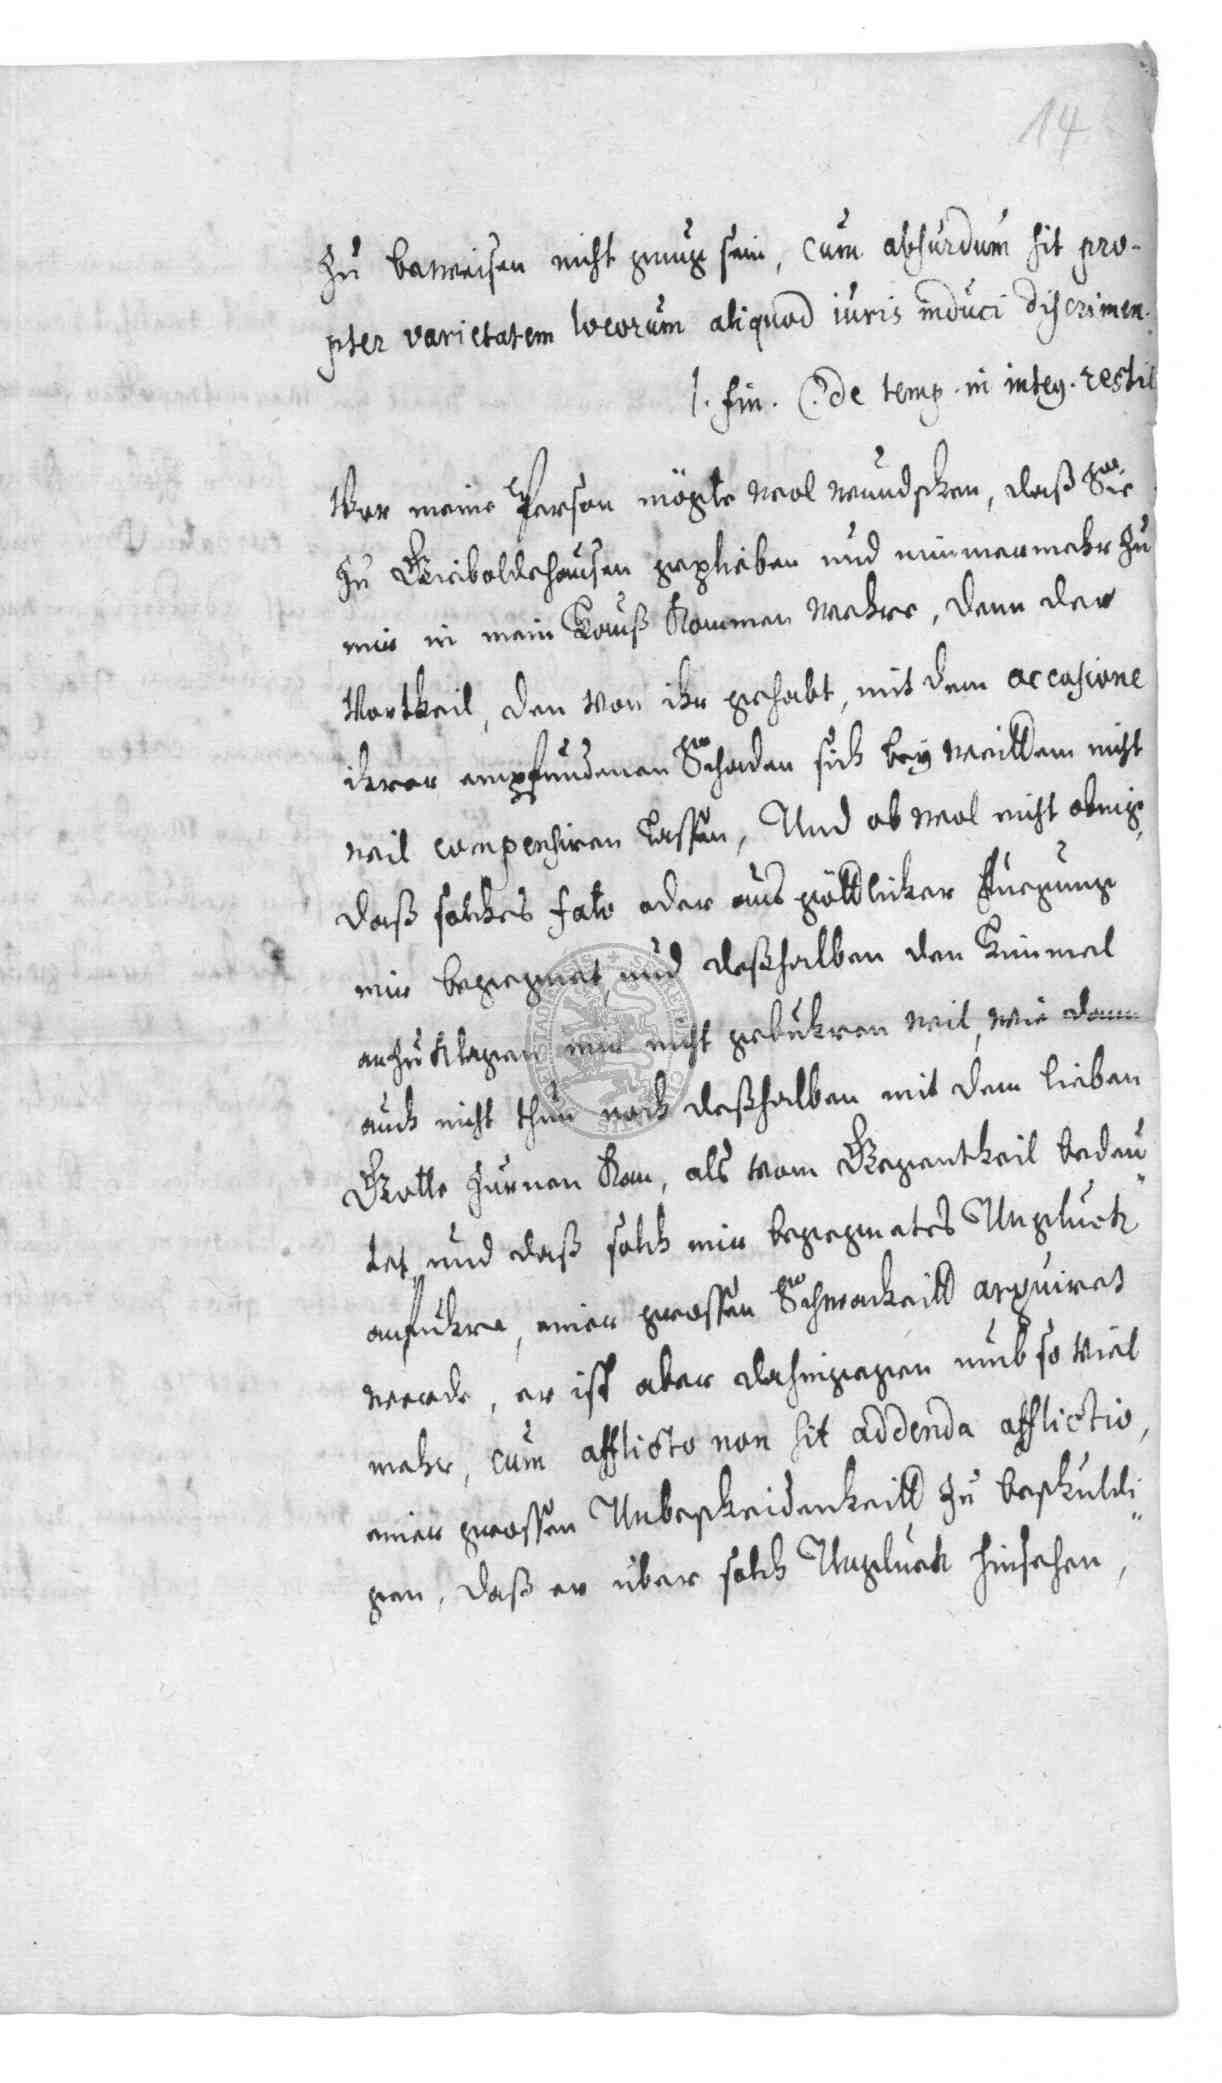 14
zu beweisen nicht gnug sein, cum absurdum sit pro-
pter varietatem locorum aliquod iuris induci discrimen.
l. fin. C. de temp. in integ. restit
Vor meine Person mögte wol wundschen, daß Sie
zu Gieboldehausen geplieben und nimmermehr zu
mir in mein Hauß kommen wehre, denn der
Vortheil, den von ihr gehabt, mit dem occasione
ihrer empfundenen Schaden sich bey weittem nicht
wil compensiren lassen, Und ob wol nicht ohnig,
daß solches fato oder aus göttlicher Fuegung
mir begegnet und deßhalben den Himmel
anzuklagen mir nicht gebuhren wil, wie dann
auch nicht thun noch deßhalben mit dem lieben
Gotte zürnen kan, als vom Gegentheil bedeu
tet, und daß solch mir begegnetes Ungluck
anfuhre, einer grossen Schwacheitt arguiret
werde, er ist aber dahingegen umb so viel
mehr, cum afflicto non sit addenda afflictio,
einer grossen Unbescheidenheitt zu beschuldi
gen, daß er über solch Ungluck hinsehen,